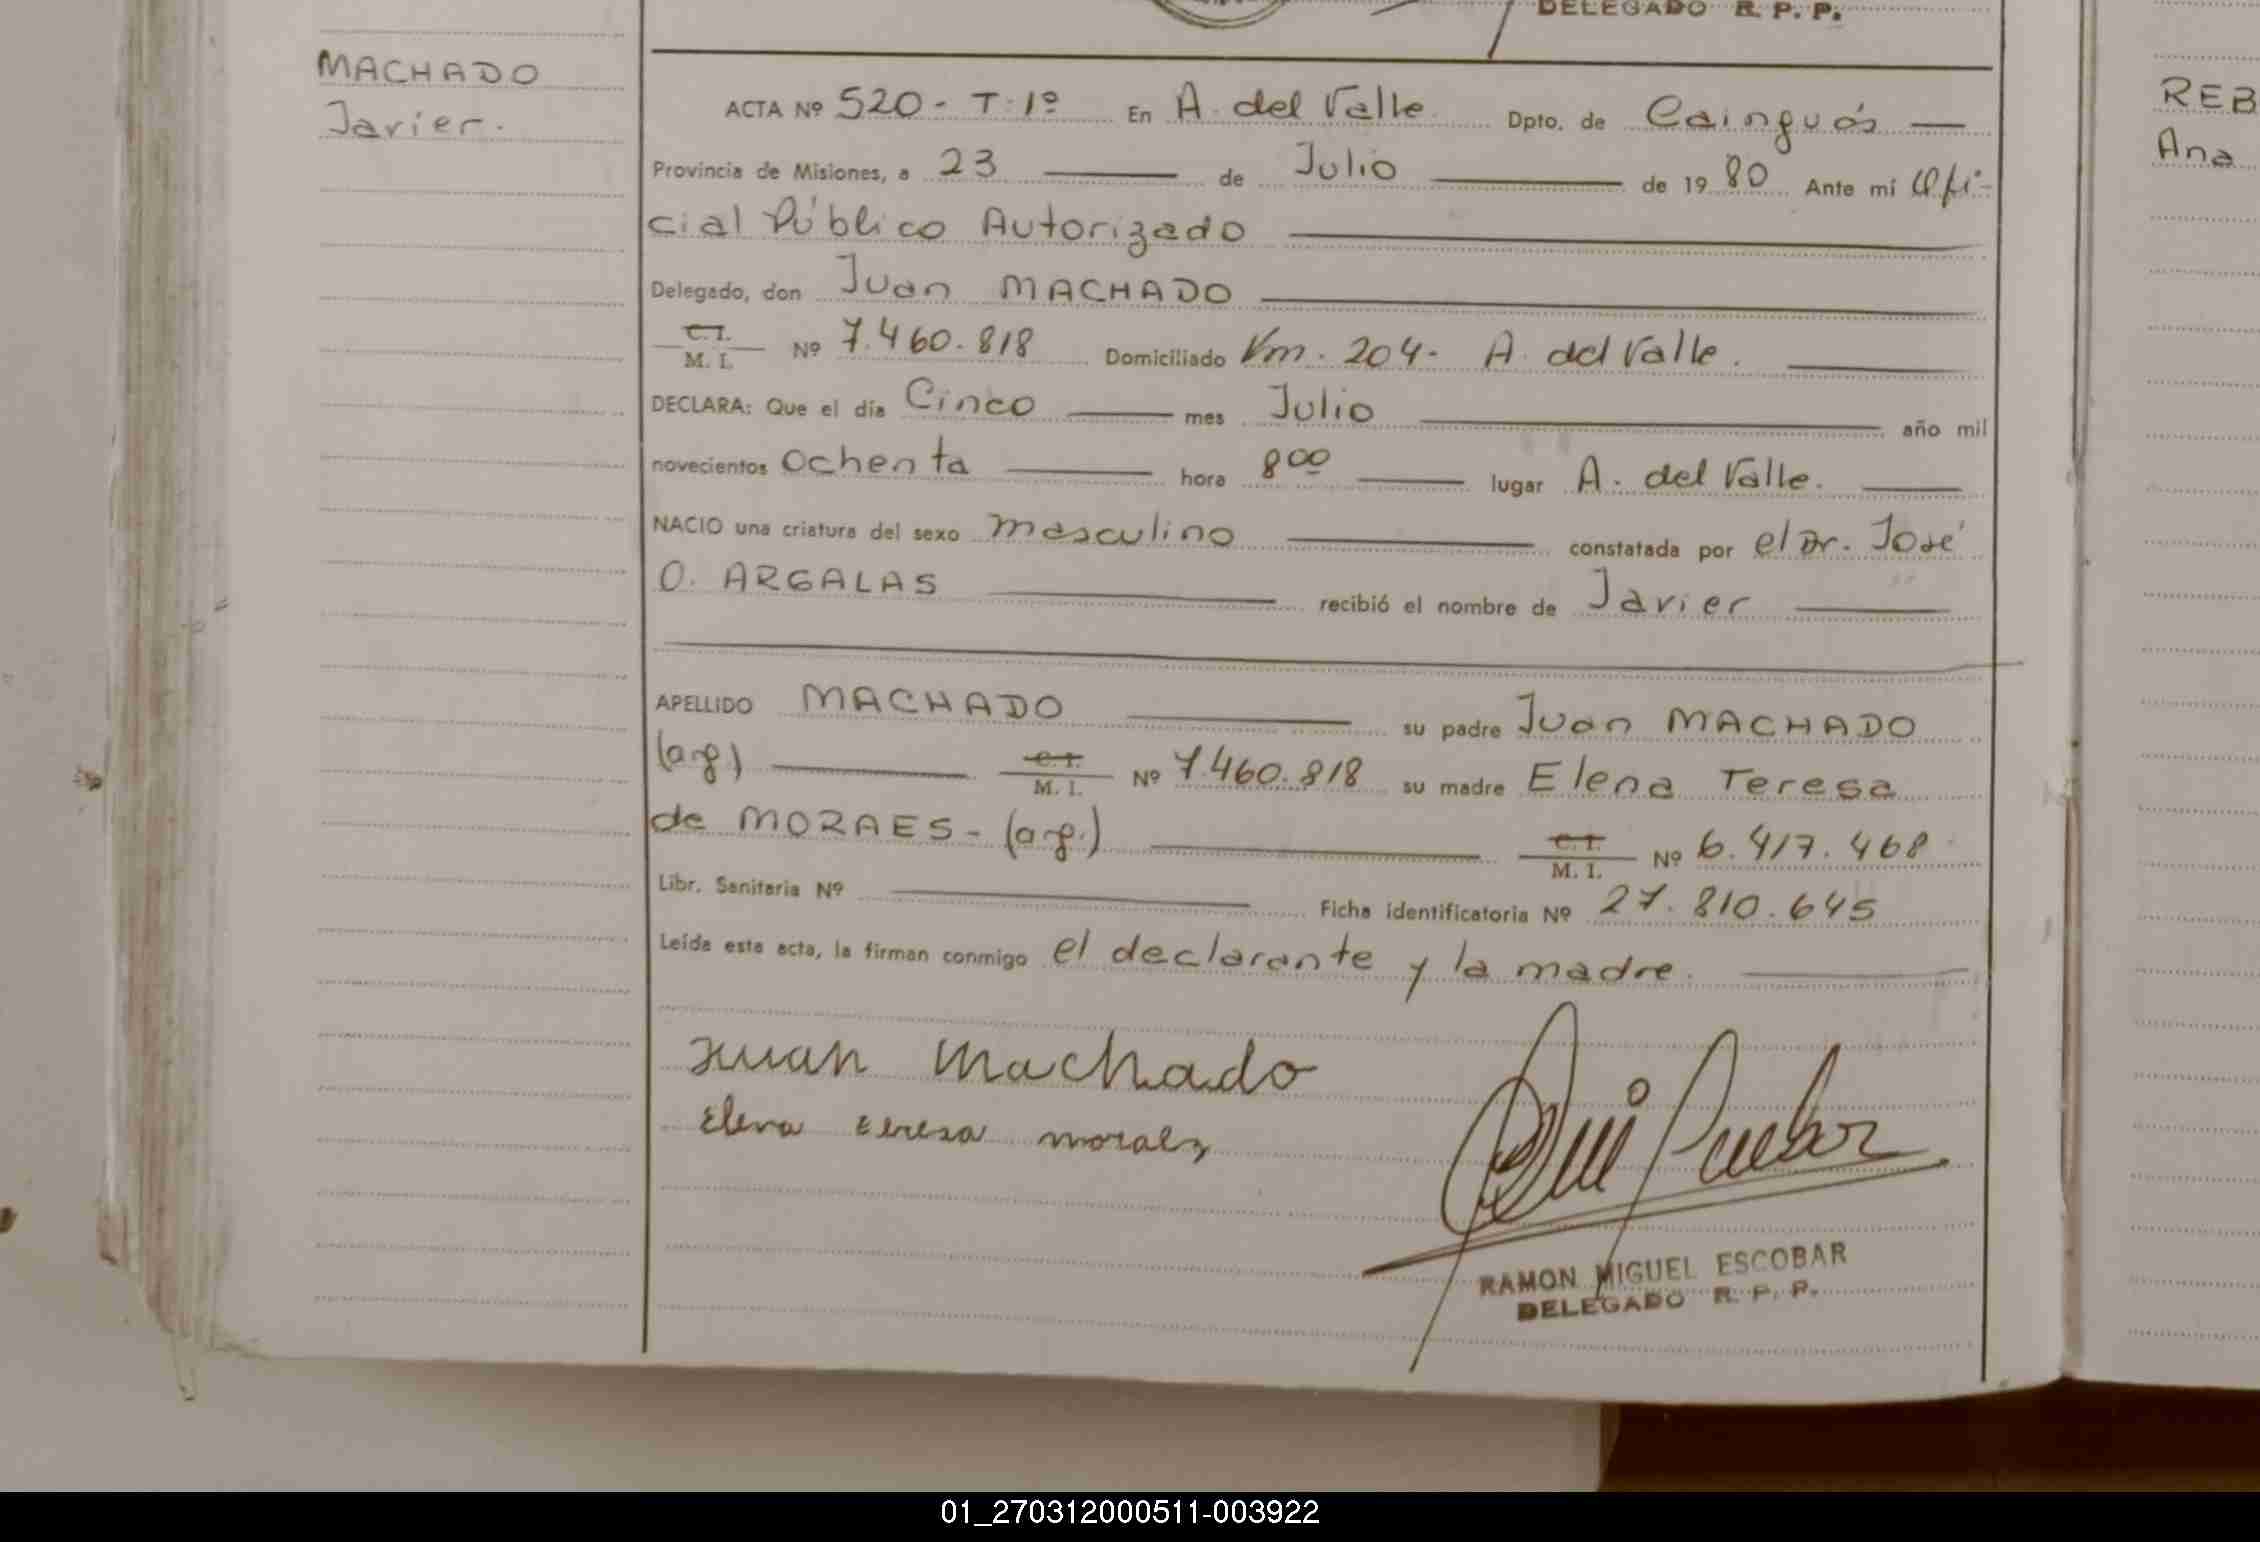 DELEGADO R. P. P.
MACHADO
Javier.
ACTA Nº 520 - T: 1º En A. del Valle Dpto. de Cainguás
Provincia de Misiones, a 23 de Julio de 1980 Ante mí Ofi-
cial Público Autorizado
Delegado, don Juan MACHADO
C.I.
M. I. Nº 7.460.818 Domiciliado Km. 204 - A. del Valle.
DECLARA: Que el día Cinco mes Julio año mil
novecientos ochenta hora 8 00 lugar A. del Valle.
NACIO una criatura del sexo masculino constatada por el Dr. José
O. ARGALAS recibió el nombre de Javier
APELLIDO MACHADO su padre Juan MACHADO
(arg) C.I.
M. I. Nº 7.460.818 su madre Elena Teresa
de MORAES - (arg.) C.I.
M. I. Nº 6.417.468
Libr. Sanitaria Nº Ficha identificatoria Nº 27.810.645
Leída esta acta, la firman conmigo el declarante y la madre.
Juan Machado
Elena teresa moraes
RAMON MIGUEL ESCOBAR
DELEGADO R. P. P.
REB
Ana
01_270312000511-003922